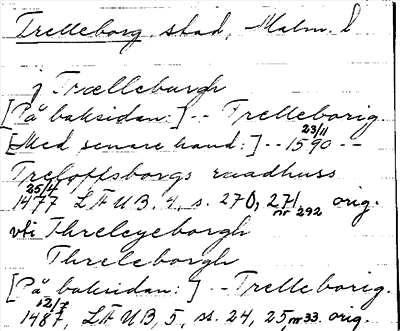 Trelleborg, stad, Malm. l
j Trælleburgh
[På baksidan:] -- Trelleborig.
[Med senare hand:] -- 23/11 1590 --
Treloffsborgs raadhuss
25/4 1477 LÄUB. 4, s. 270, 271, nr 292 orig.
vti Threlegeborgh
Threleborgh
[På baksidan:] -- Trelleborig.
1487, LÄUB, 5, ss. 24, 25, nr 33. orig.